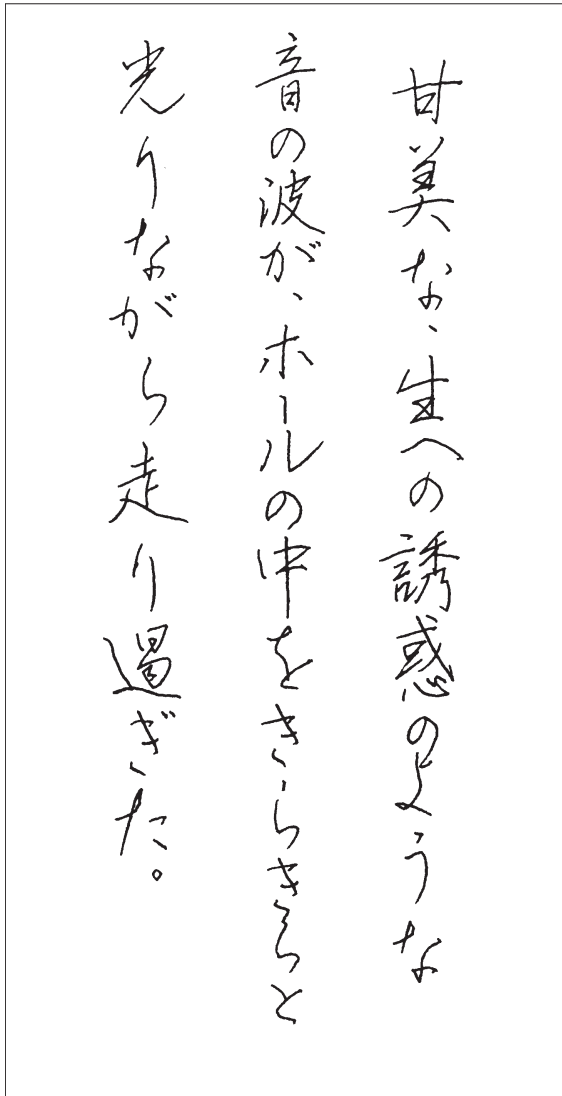 甘美な、生への誘惑のような
音の波が、ホールの中をきらきらと
光りながら走り過ぎた。